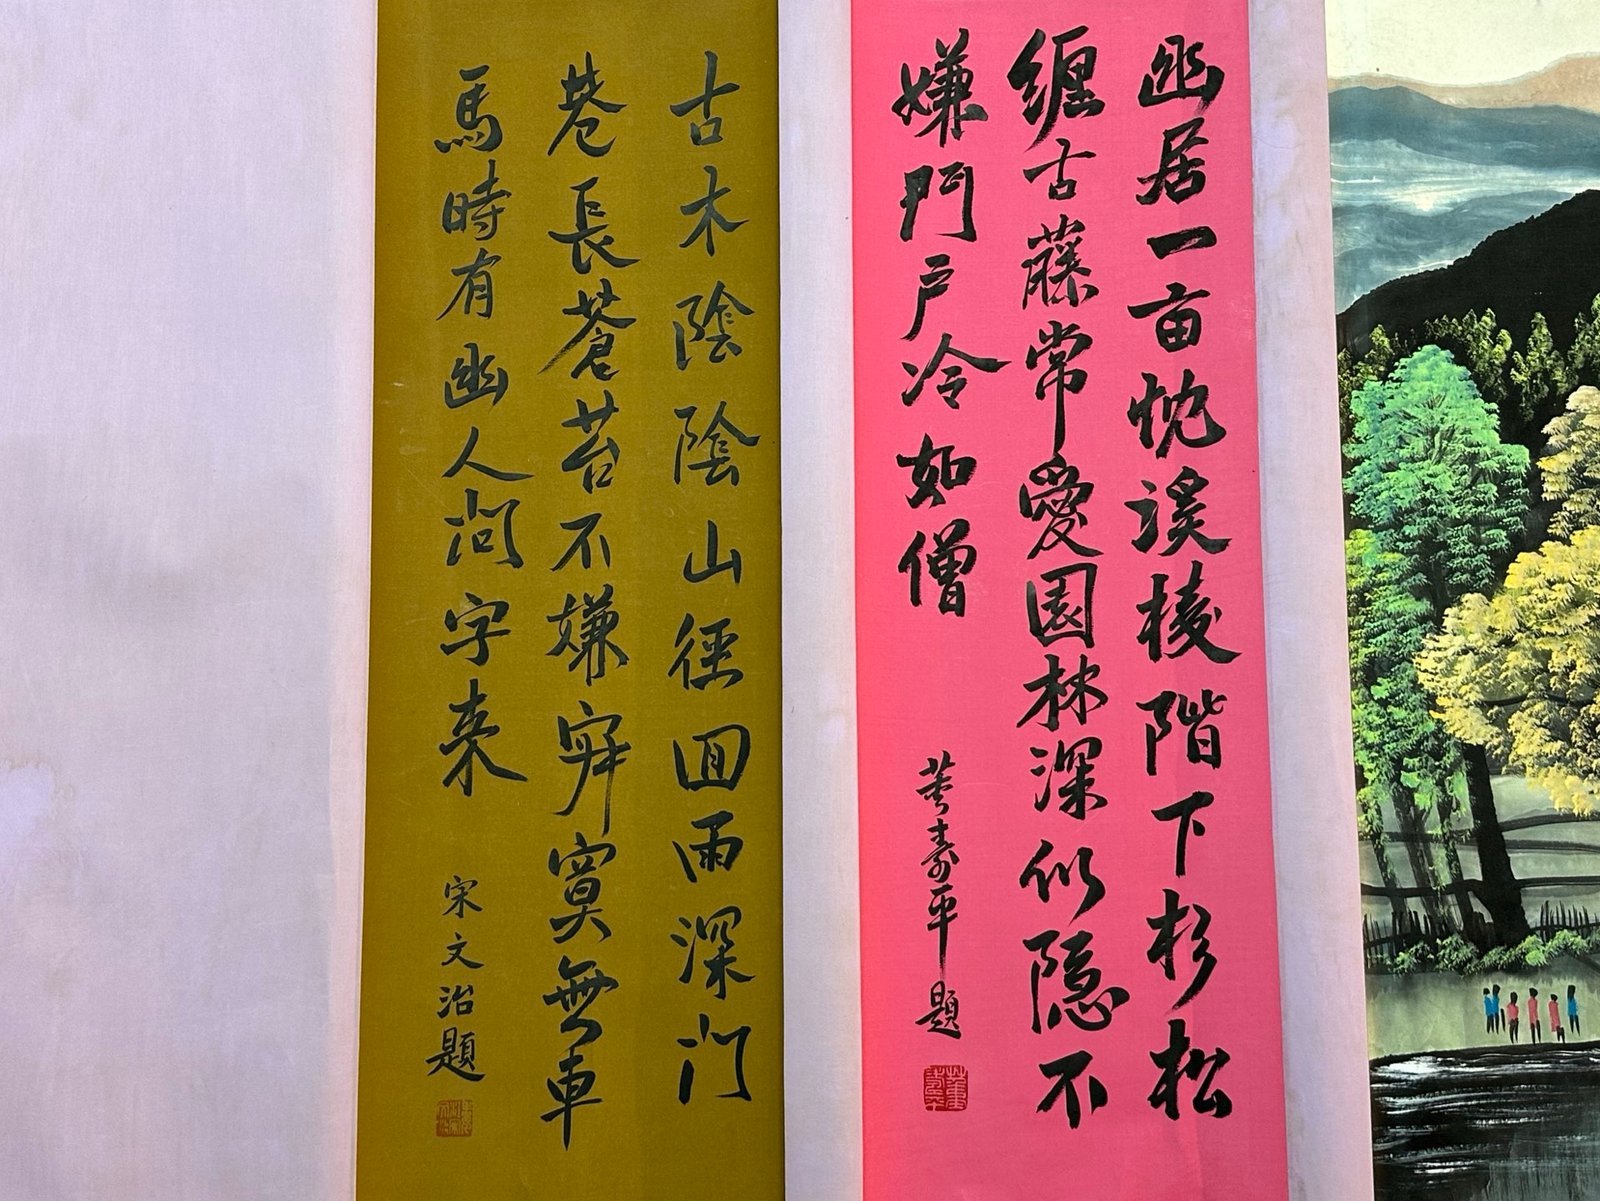 幽居一亩忱溪棱階下杉松
缠古藤常愛園林深似隱不
嫌門户冷如僧
董寿平題
古木陰陰山徑囬雨深门
巷長蒼苔不嫌寂寞無車
馬時有幽人问字来
宋文治題